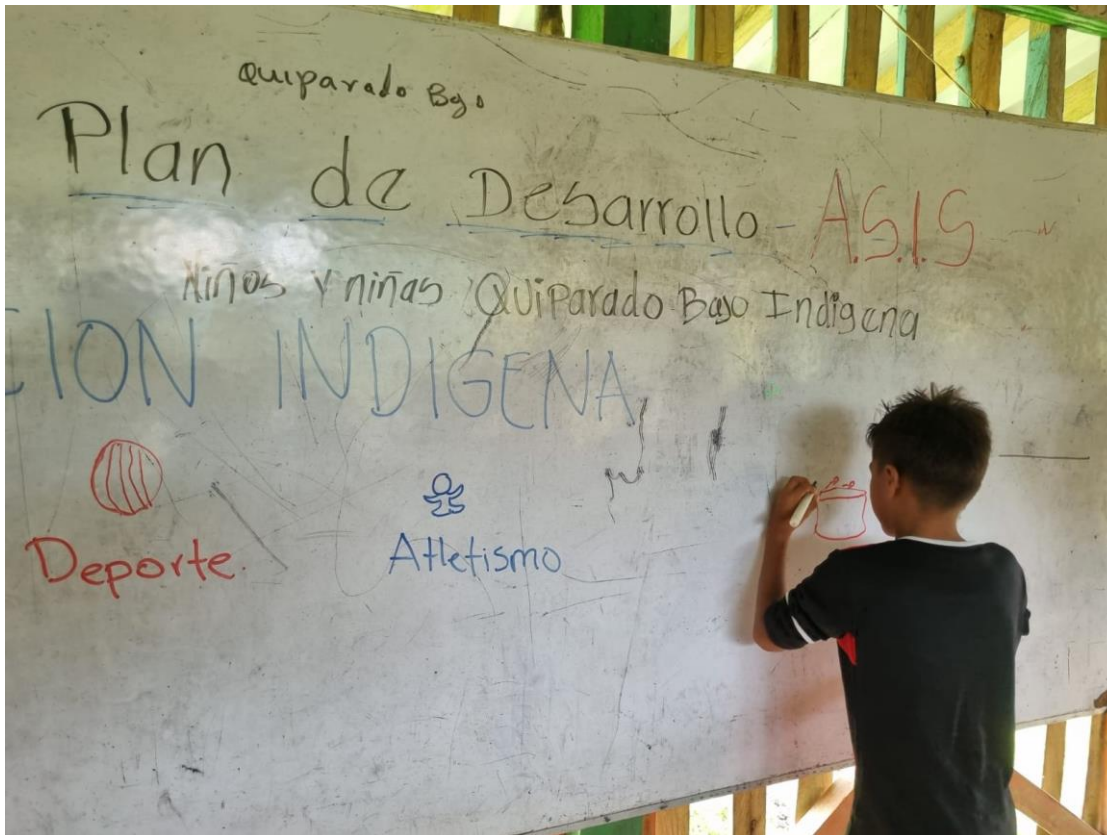 Quiparado Bajo
Plan de Desarrollo - A.S.I.S
Niños y niñas Quiparado Bajo Indigena
CION INDIGENA
Deporte.
Atletismo